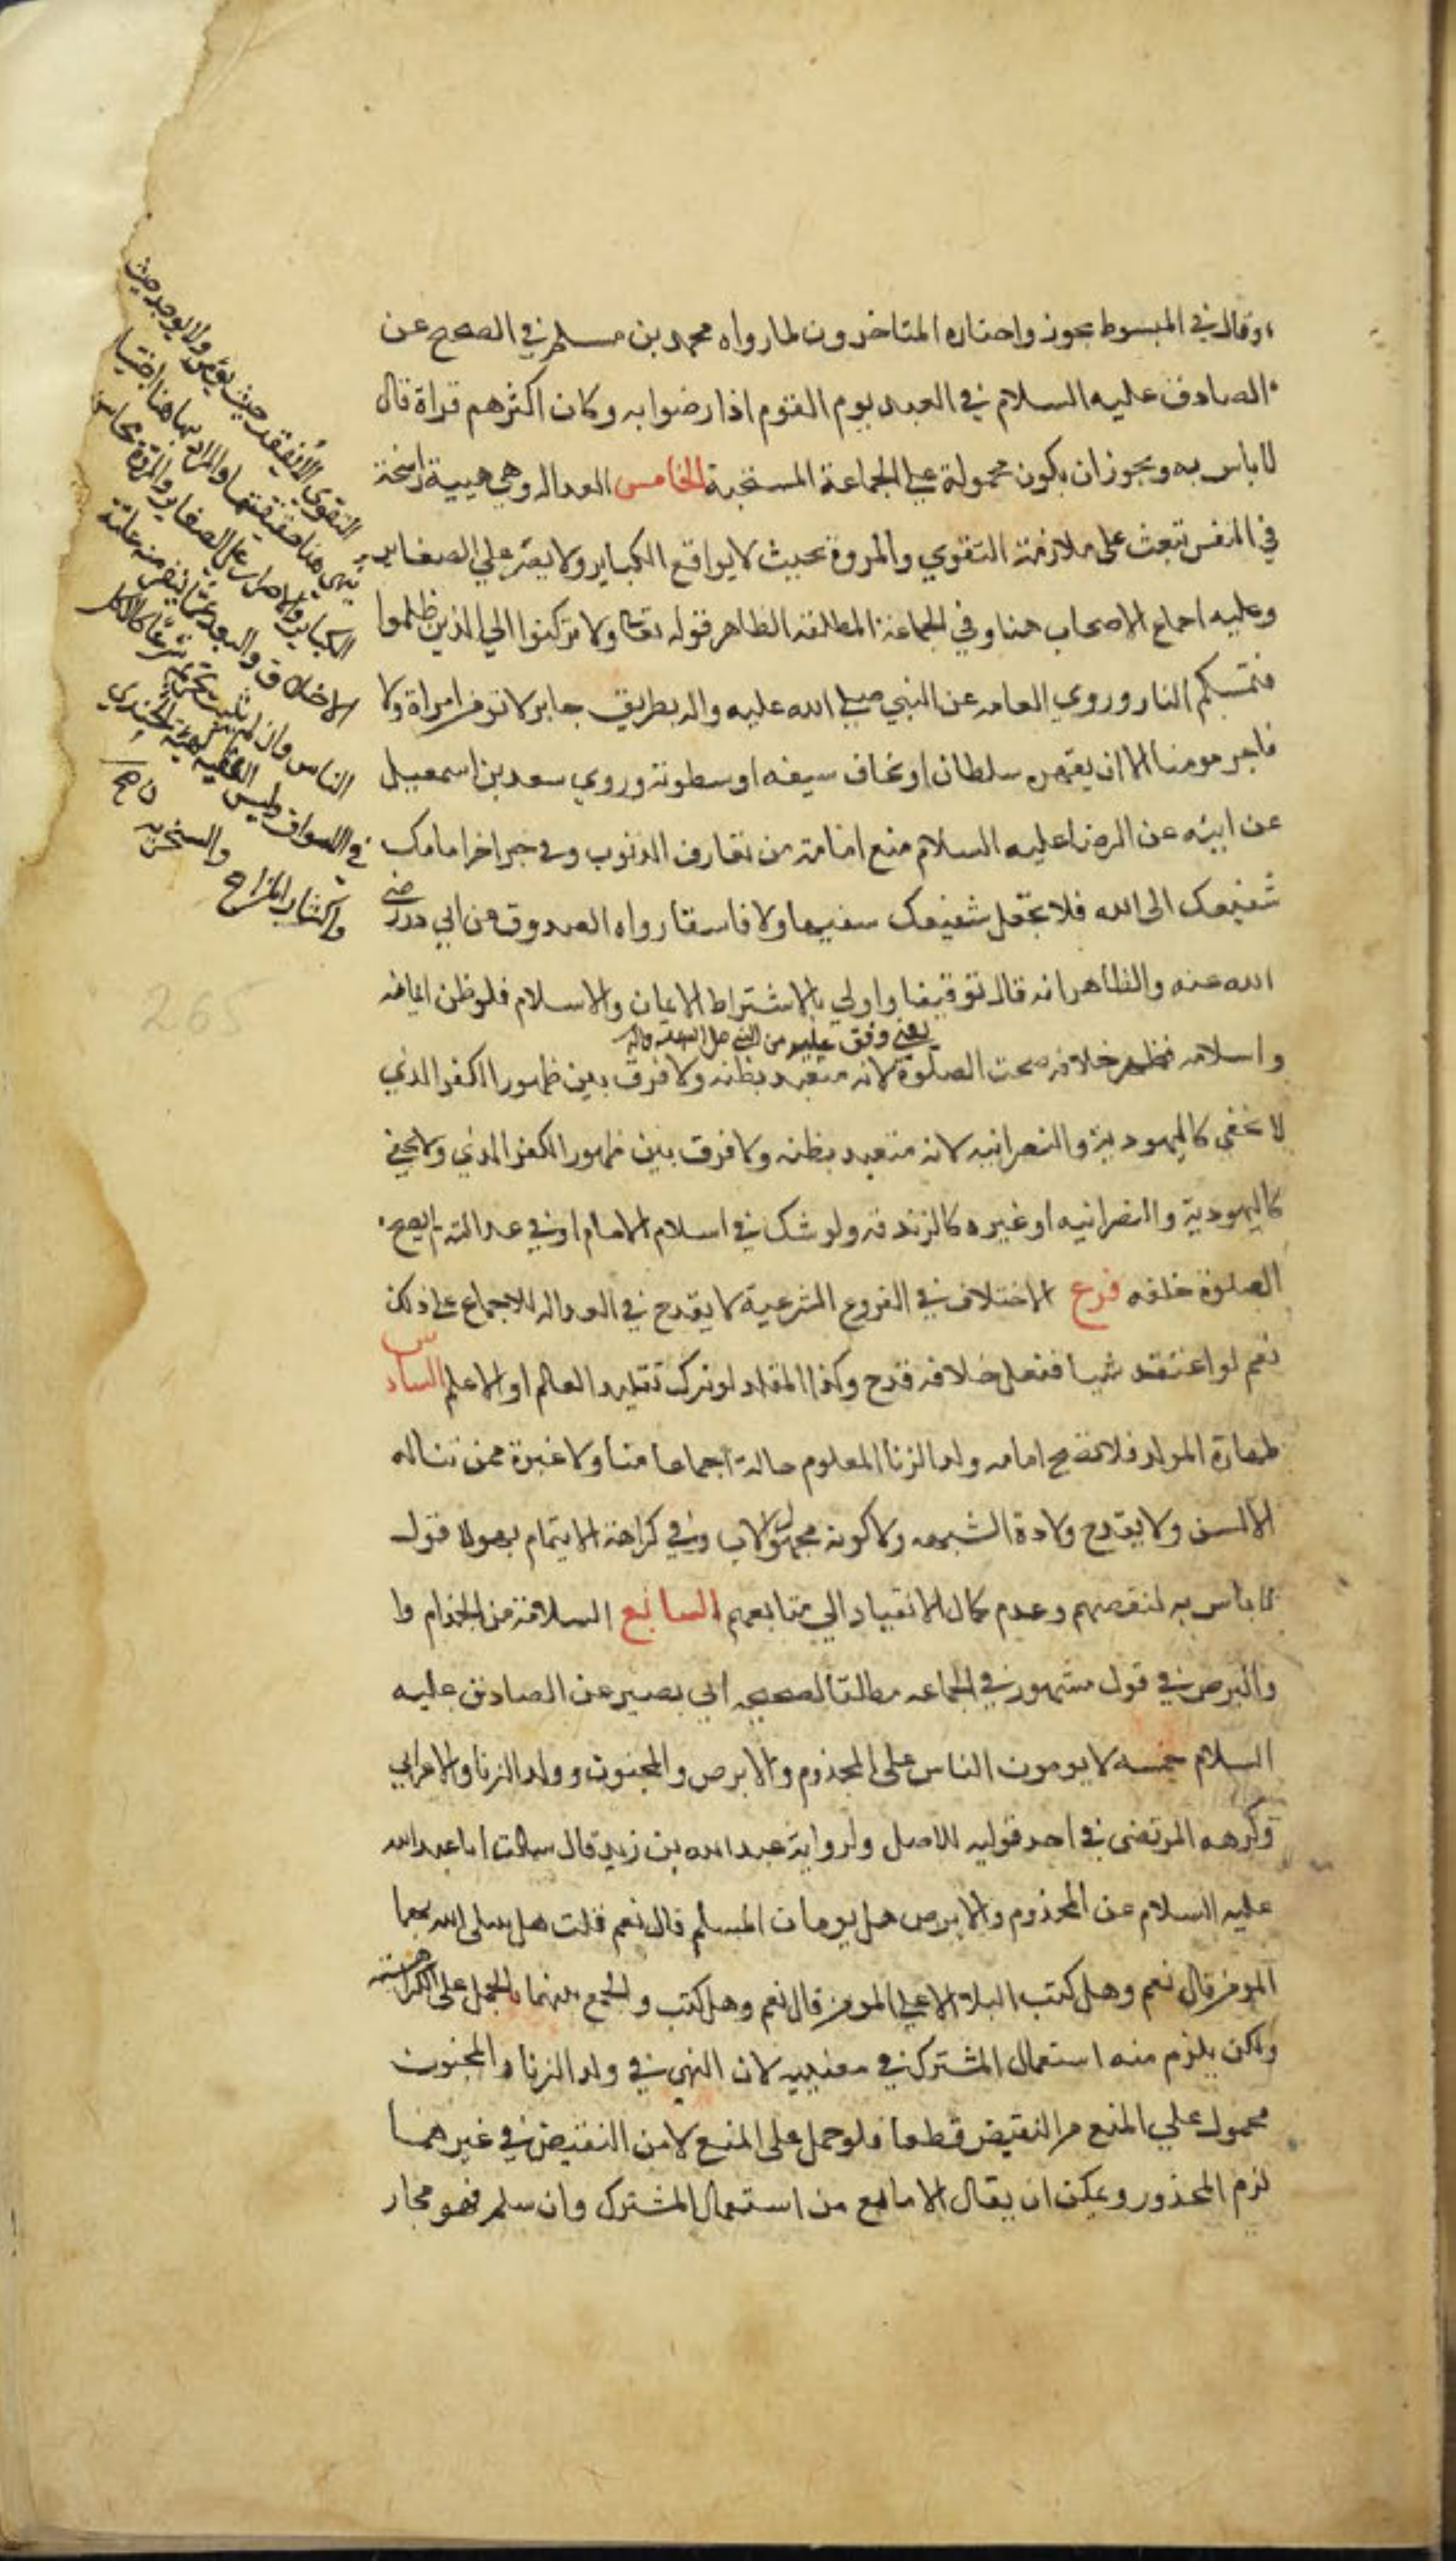 وقال في المبسوط يجوز واختاره المتاخرون لما رواه محمد بن مسلم في الصحيح عن
الصادق عليه السلام في العبد يوم القوم اذا رضوا به وكان اكثرهم قراة قال
لا باس به ويجوز ان يكون محمولة على الجماعة المستحبة الخامس العداله وهي هيية راسخة
في النفس تبعث على ملازمة التقوي والمروة بحيث لا يواقع الكباير ولا يصر علي الصغاير
وعليه اجماع الاصحاب هنا وفي الجماعة المطلقه الظاهر قوله تعالى ولا تركنوا الي الذين ظلموا
فتمسكم النار وروي العامه عن النبي صلى الله عليه واله بطريق جابر لا تومن امراة ولا
فاجر مومنا الا ان يقهره سلطان او يخاف سيفه او سطوته وروي سعد بن اسمعيل
عن ابيه عن الرضا عليه السلام منع امامة من يقارف الذنوب وفي خبر اخر امامك
شفيعك الى الله فلا تجعل شفيعك سفيها ولا فاسقا رواه الصدوق عن ابي ذر رضي
الله عنه والظاهر انه قاله توقيفا واولي بالاشتراط الايمان والاسلام فلو ظن ايمانه
يعني وقف عليه من النبي صلى الله عليه واله
واسلامه فظهر خلافه صحت الصلوة لانه متعبد بظنه ولا فرق بين ظهور الكفر الذي
لا يخفي كاليهودية والنصرانيه لانه متعبد بظنه ولا فرق بين ظهور الكفر الذي ولا يخفي
كاليهودية والنصرانيه او غيره كالزندقه ولو شك في اسلام الامام او في عدالته لم يصح
الصلوة خلفه فرع الاختلاف في الفروع الشرعية لا يقدح في العداله للاجماع على ذلك
نعم لو اعتقد شيا ففعل خلافه قدح وكذا المقلد لو ترك تقليد العالم او الاعلم السادس
طهارة المولد فلا تصح امامه ولد الزنا المعلوم حاله اجماعا منا ولا عبرة بمن تناله
الالسن ولا يقدح ولادة الشبهه ولا كونه مجهول الاب وفي كراهة الايتمام بهولا قول
لا باس به لنقصهم وعدم كمال الانقياد الي متابعهم السابع السلامة من الجذام وا
والبرص في قول مشهور في الجماعه مطلقا لصحيحه ابي بصير عن الصادق عليه
السلام خمسه لا يومون الناس على المجذوم والابرص والمجنون وولد الزنا والاعرابي
وكرهه المرتضى في احد قوليه للاصل ولرواية عبد الله بن زيد قال سالت ابا عبد الله
عليه السلام عن المجذوم والابرص هل يومان المسلم قال نعم قلت هل يبتلى الله بهما
المومن قال نعم وهل كتب البلا الا علي المومن قال نعم وهل كتب والجمع بينهما بالحمل على الكراهية
ولكن يلزم منه استعمال المشترك في معنييه لان النهي في ولد الزنا والمجنون
محمول علي المنع من النقيض قطعا فلو حمل على المنع لا من النقيض في غيرهما
لزم المحذور ويمكن ان يقال الا مانع من استعمال المشترك وان سلم فهو مجاز
التقوي حيث ولا يوجد حيث
الكباير والاصرار على الصغاير والمروة محاسن
الاخلاق والبعد عما ينفر منه عامة
الناس وان لم شرعا كالاكل
في الاسواق ولبس الفقيه الجندي
واكثار المزاح والسخريه
265